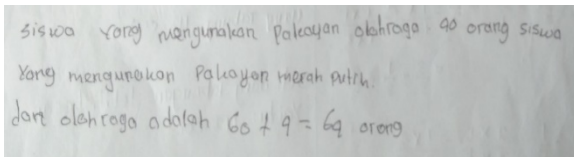 siswa yang mengunakan Pakayan olahraga 90 orang siswa
Yang mengunakan Pakayan merah putih.
dan olahraga adalah 60 + 9 = 69 orang